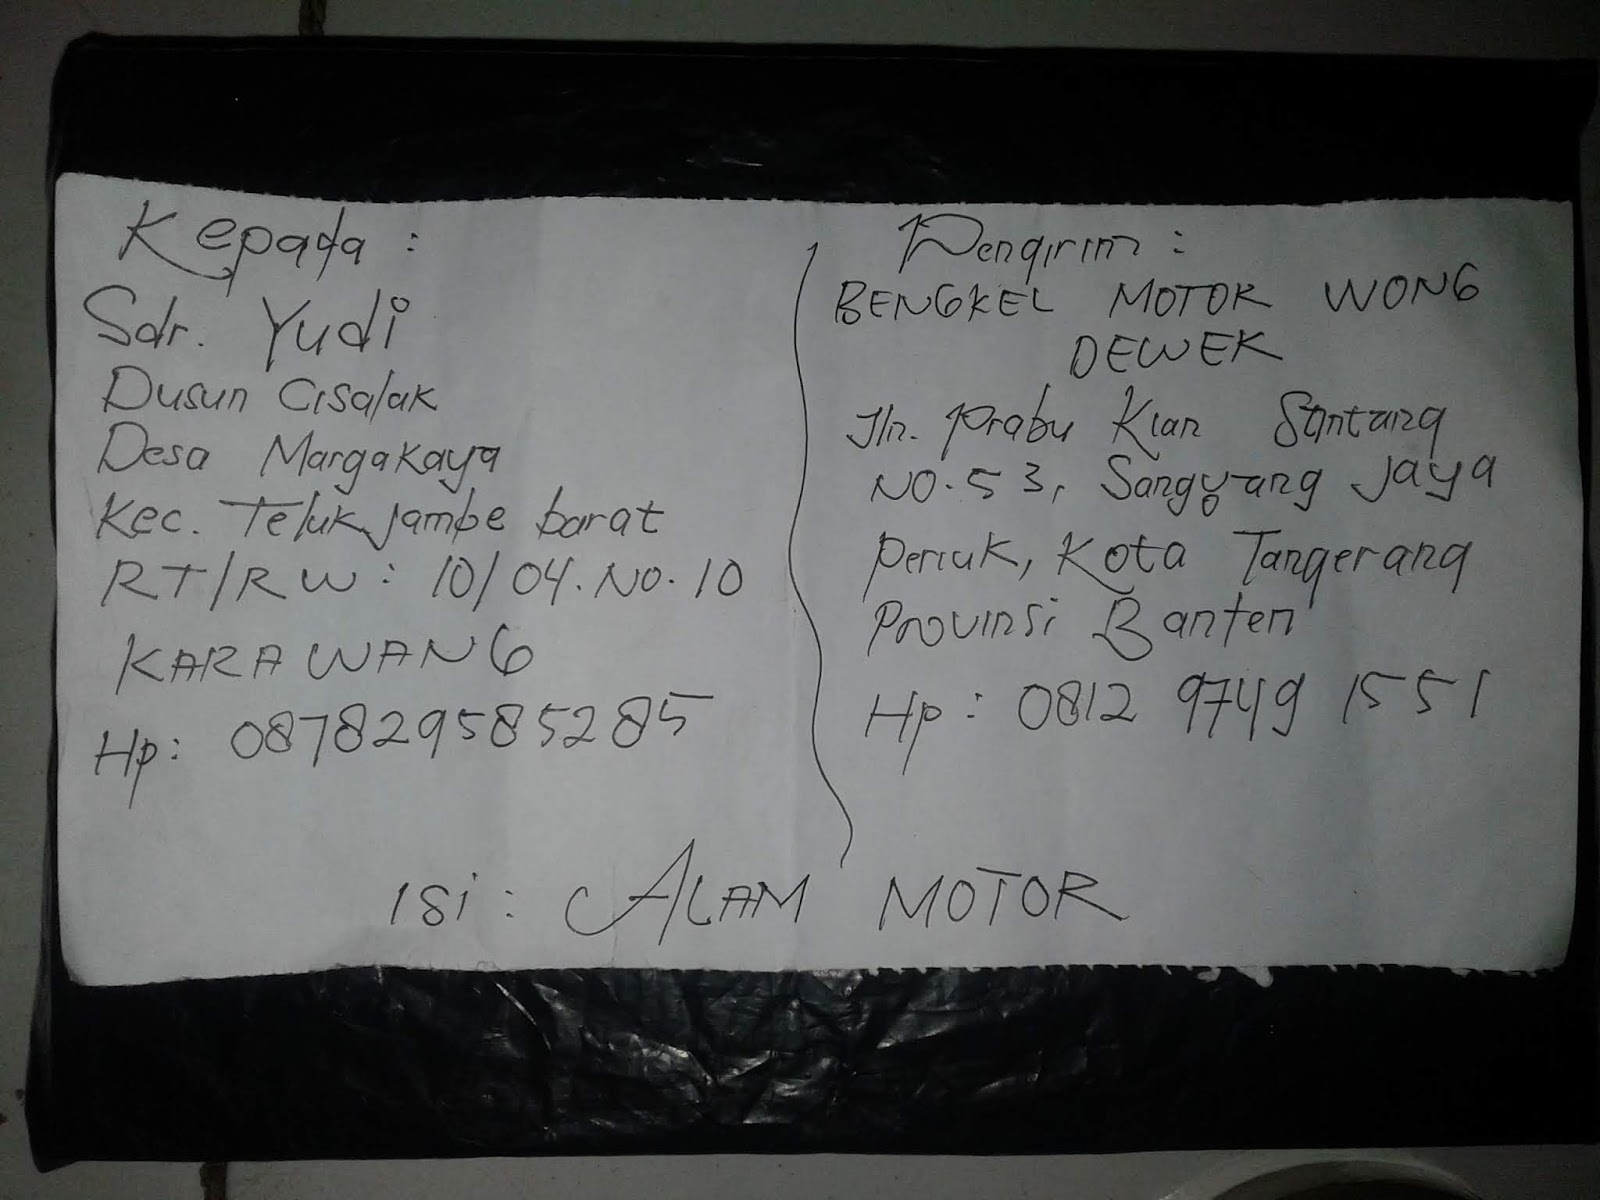 Kepada :
Sdr. Yudi
Dusun Cisalak
Desa Margakaya
Kec. Teluk jambe barat
RT/RW : 10/04. No. 10
KARAWANG
Hp : 087829585285
Pengirim :
BENGKEL MOTOR WONG
DEWEK
Jln. Prabu Kian Santang
NO. 53, Sangyang Jaya
Periuk, Kota Tangerang
Provinsi Banten
Hp : 0812 9749 1551
Isi : ALAM MOTOR